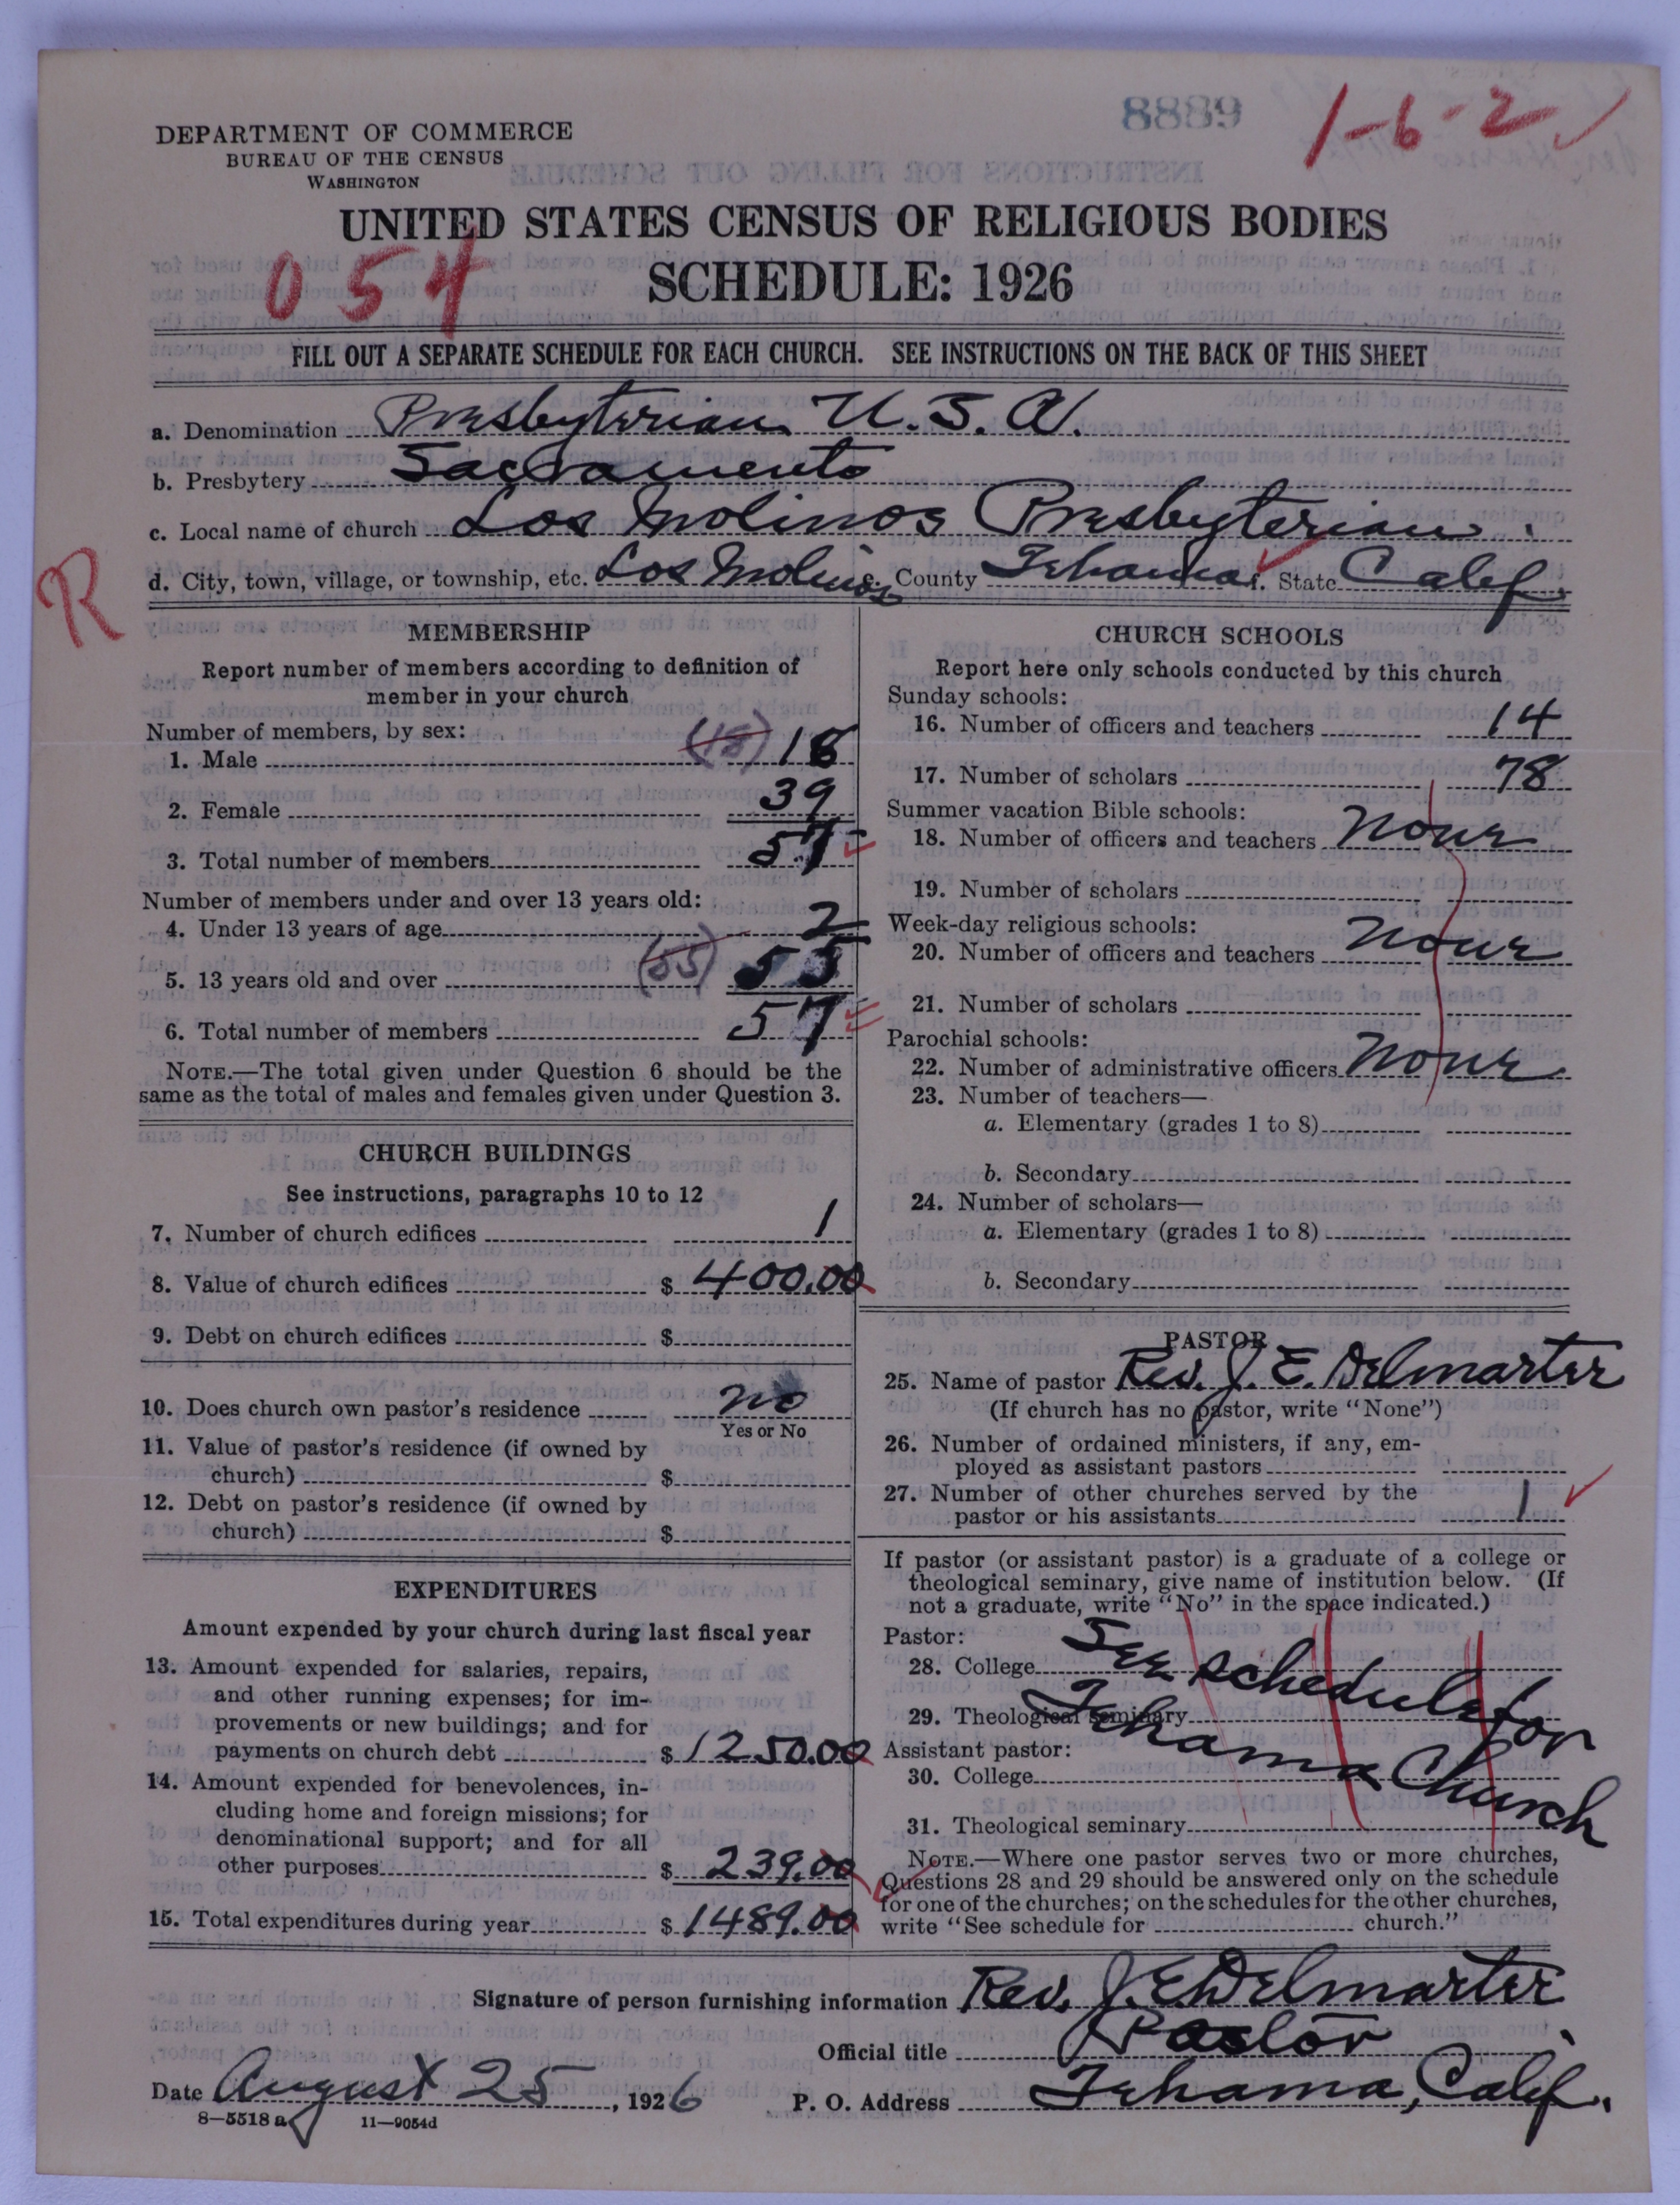 8889
1-6-2 ✓
DEPARTMENT OF COMMERCE
BUREAU OF THE CENSUS
WASHINGTON
UNITED STATES CENSUS OF RELIGIOUS BODIES
054
SCHEDULE: 1926
FILL OUT A SEPARATE SCHEDULE FOR EACH CHURCH. SEE INSTRUCTIONS ON THE BACK OF THIS SHEET
a. Denomination Presbyterian U.S.A.
b. Presbytery Sacramento
c. Local name of church Los Molinos Presbyterian.
R
d. City, town, village, or township, etc. Los Molinos e. County Tehama f. State Calif.
MEMBERSHIP
Report number of members according to definition of
member in your church
Number of members, by sex:
1. Male (18) 18
2. Female 39
3. Total number of members 57
Number of members under and over 13 years old:
4. Under 13 years of age 2
5. 13 years old and over (55) 55
6. Total number of members 57
NOTE.—The total given under Question 6 should be the
same as the total of males and females given under Question 3.
CHURCH BUILDINGS
See instructions, paragraphs 10 to 12
7. Number of church edifices 1
8. Value of church edifices $ 400.00
9. Debt on church edifices $
10. Does church own pastor's residence No
Yes or No
11. Value of pastor's residence (if owned by
church) $
12. Debt on pastor's residence (if owned by
church) $
EXPENDITURES
Amount expended by your church during last fiscal year
13. Amount expended for salaries, repairs,
and other running expenses; for im-
provements or new buildings; and for
payments on church debt $ 1250.00
14. Amount expended for benevolences, in-
cluding home and foreign missions; for
denominational support; and for all
other purposes $ 239.00
15. Total expenditures during year $ 1489.00
CHURCH SCHOOLS
Report here only schools conducted by this church
Sunday schools:
16. Number of officers and teachers 14
17. Number of scholars 78
Summer vacation Bible schools:
18. Number of officers and teachers None
19. Number of scholars
Week-day religious schools:
20. Number of officers and teachers None
21. Number of scholars
Parochial schools:
22. Number of administrative officers None
23. Number of teachers—
a. Elementary (grades 1 to 8)
b. Secondary
24. Number of scholars—
a. Elementary (grades 1 to 8)
b. Secondary
PASTOR
25. Name of pastor Rev. J. E. Delmarter
(If church has no pastor, write "None")
26. Number of ordained ministers, if any, em-
ployed as assistant pastors
27. Number of other churches served by the
pastor or his assistants 1 ✓
If pastor (or assistant pastor) is a graduate of a college or
theological seminary, give name of institution below. (If
not a graduate, write "No" in the space indicated.)
Pastor:
28. College See schedule for
29. Theological seminary Tehama Church
Assistant pastor:
30. College
31. Theological seminary
NOTE.—Where one pastor serves two or more churches,
Questions 28 and 29 should be answered only on the schedule
for one of the churches; on the schedules for the other churches,
write "See schedule for church."
Signature of person furnishing information Rev. J. E. Delmarter
Official title Pastor
Date August 25, 1926 P. O. Address Tehama, Calif.
8—5518 a 11—9054d